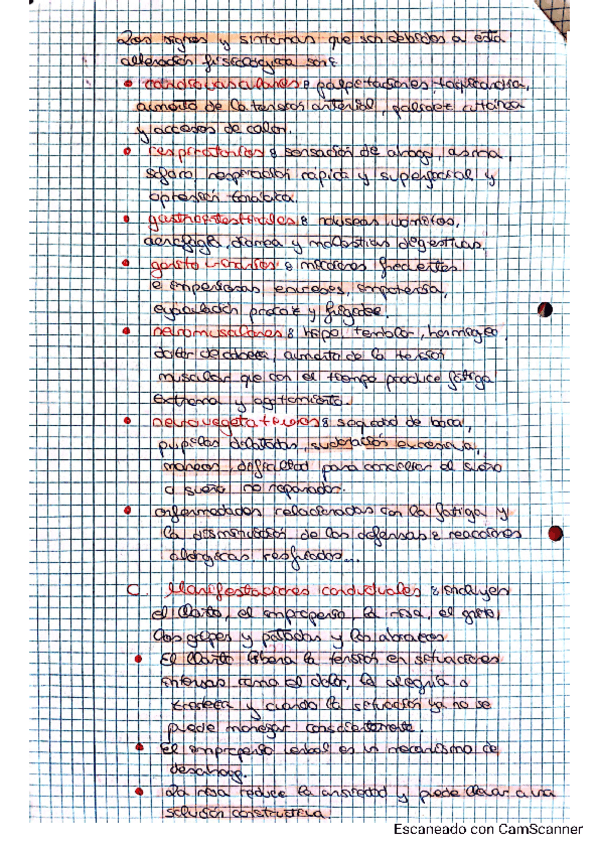 Los signos y síntomas que son debidos a esta
alteración fisiológica son:
• cardiovasculares: palpitaciones, taquicardia,
aumento de la tensión arterial,
y accesos de calor.
• respiratorios: sensación de ahogo, asma,
respiración rápida y superficial y
opresión torácica.
• gastrointestinales: náuseas, vómitos,
aerofagia, diarrea y molestias digestivas.
• genito-urinarios: micciones frecuentes
e imperiosas, enuresis, impotencia,
eyaculación precoz y frigidez.
• neuromusculares: hipo, temblor, hormigueo,
dolor de cabeza, aumento de la tensión
muscular que con el tiempo produce fatiga
extrema y agotamiento.
• neurovegetativos: sequedad de boca,
pupilas dilatadas, sudoración excesiva,
mareos, dificultad para conciliar el sueño
o sueño no reparador.
• enfermedades relacionadas con la fatiga y
la disminución de las defensas: reacciones
alérgicas, resfriados...
C. Manifestaciones conductuales: incluyen
el llanto, el improperio, la risa, el grito,
los golpes y patadas y los abrazos.
• El llanto libera la tensión en situaciones
intensas como el dolor, la alegría o
tristeza y cuando la situación ya no se
puede manejar conscientemente.
• El improperio verbal es un mecanismo de
desahogo.
• La risa reduce la ansiedad y puede llevar a una
solución constructiva.
Escaneado con CamScanner